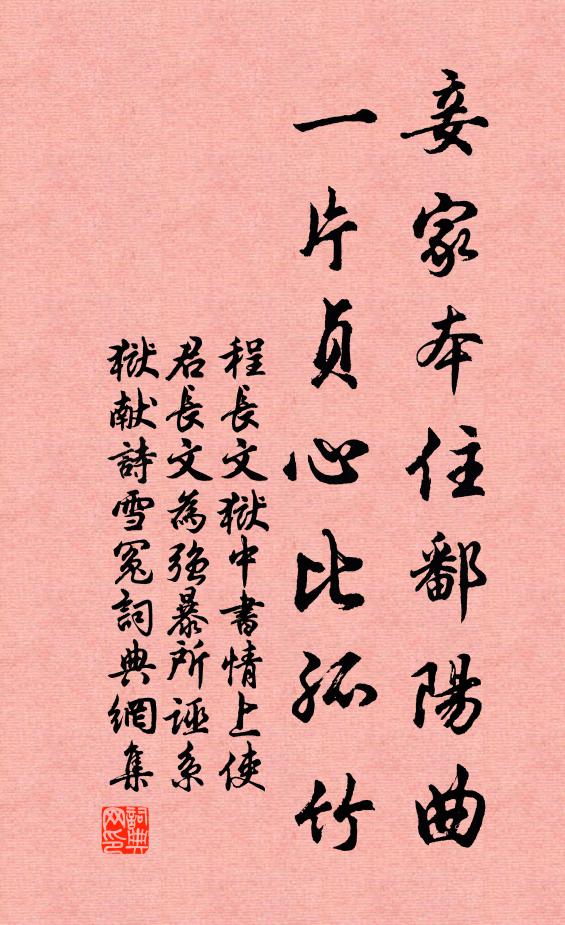 妾家本住鄱陽曲
一片貞心比孤竹
程長文獄中書情上使
君長文為強暴所誣系
獄献詩雪冤詞典網集
詞典
网印